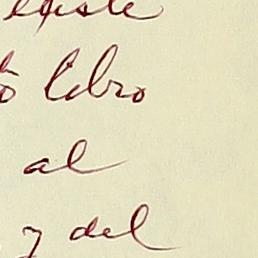 existe
ó libro
al
y del